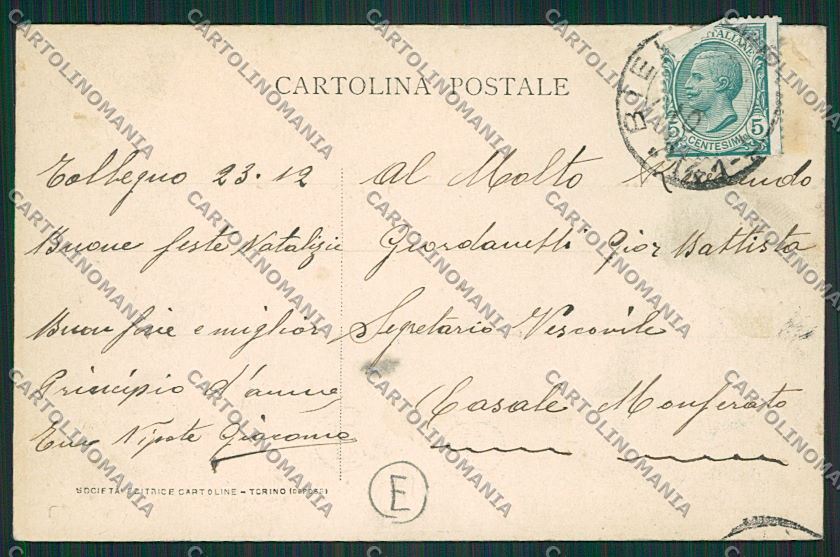 CARTOLINA POSTALE
ITALIANE
5 CENTESIMI 5
Tollegno 23.12
Buone feste Natalizie
Buon fine e miglior
Principio d'anno
Nipote Giacomo
SOCIETÀ EDITRICE CARTOLINE - TORINO (DEPOSE)
Al Molto Reverendo
Giordanetti Gior Battista
Segretario Vescovile
Casale Monferato
E
CARTOLINOMANIA